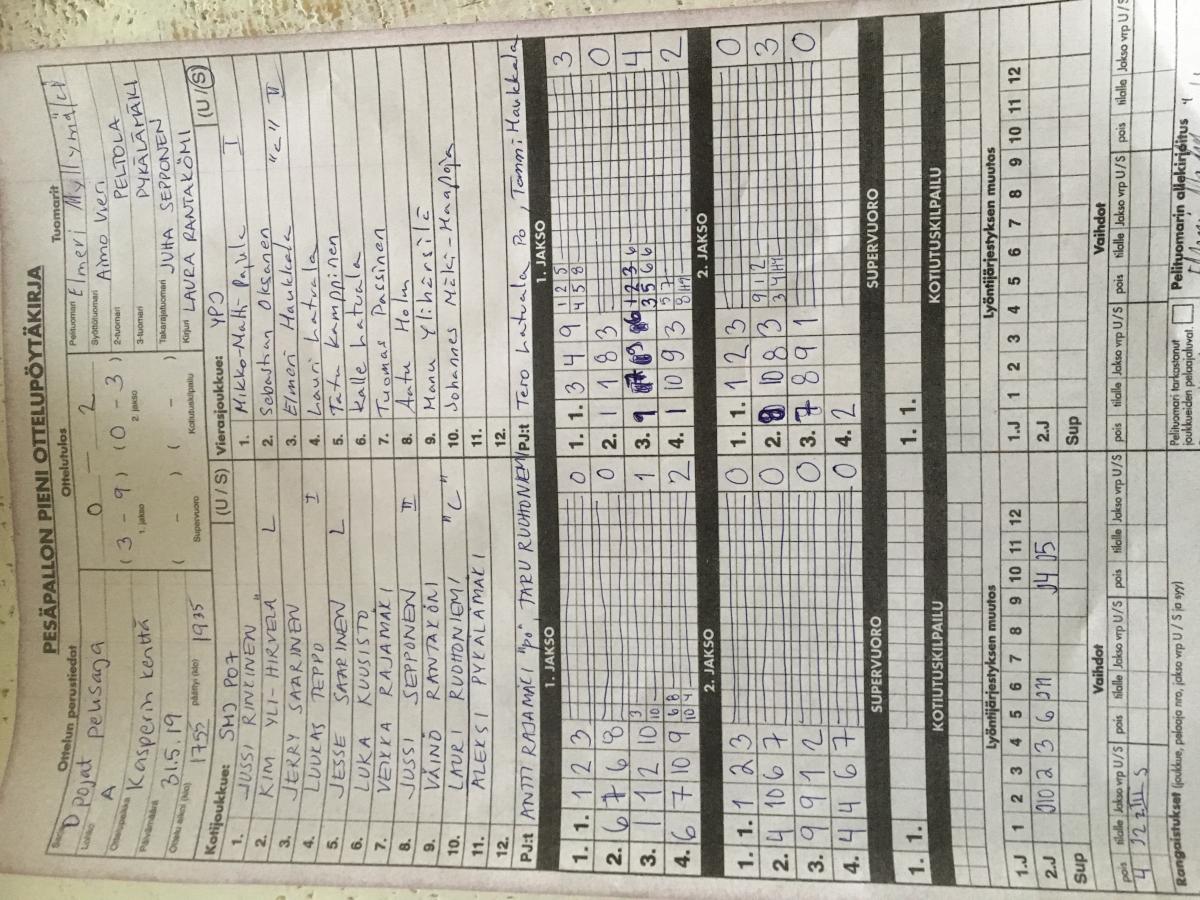 PESÄPALLON PIENI OTTELUPÖYTÄKIRJA
Ottelun perustiedot
Sarja D pojat pelisarja
Lohko A
Ottelupaikka Kasperin kenttä
Päivämäärä 31.5.19
Ottelu alkoi (klo) 1755 päättyi (klo) 1935
Ottelutulos
0 – 2
(3 – 9) (10 – 3)
1. jakso 2. jakso
( – ) ( – )
Supervuoro Kotiutuskilpailu
Tuomarit
Pelituomari Elmeri Myllymäki
Syöttötuomari Aimo Vieri
2-tuomari PELTOLA
3-tuomari PYKÄLÄMÄKI
Takarajatuomari JUHA SEPPONEN
Kirjuri LAURA RANTAKÖMI
Kotijoukkue: SMJ P07 (U/S)
1. JUSSI RINKINEN
2. KIM YLI-HIRVELÄ L
3. JERRY SAARINEN
4. LUUKAS TEPPO I
5. JESSE SAARINEN L
6. LUKA KUUSISTO
7. VEIKKA RAJAMÄKI
8. JUSSI SEPPONEN II
9. VÄINÖ RANTAKÖMI
10. LAURI RUOHONIEMI "C"
11. ALEKSI PYKÄLÄMÄKI
12.
PJ:t ANTTI RAJAMÄKI "po" TARU RUOHONIEMI
Vierasjoukkue: YPJ (U/S)
1. Mikko-Matti Pajula I
2. Sebastian Oksanen
3. Elmeri Haukkala "C" II
4. Lauri Latvala
5. Tatu Kamppinen
6. Kalle Latvala
7. Tuomas Passinen
8. Aatu Holm
9. Manu Ylihärsilä
10. Johannes Mäki-Haapoja
11.
12.
PJ:t Tero Latvala Po, Tommi Haukkala
1. JAKSO
1. 1. 1 2 3 0
2. 6 7 6 8 0
3. 1 1 2 10 3 10 1
4. 6 7 10 9 6 8 10 4 2
1. JAKSO
1. 1. 3 4 9 1 2 5 4 5 8 3
2. 1 1 8 3 0
3. 9 4
4. 1 10 9 3 5 7 8 2
2. JAKSO
1. 1. 1 2 3 0
2. 4 10 6 7 0
3. 9 9 1 2 0
4. 4 4 6 7 0
2. JAKSO
1. 1. 1 2 3 0
2. 8 10 8 3 9 1 2 3
3. 7 8 9 1 0
4. 2
SUPERVUORO
1. 1.
SUPERVUORO
1. 1.
KOTIUTUSKILPAILU
KOTIUTUSKILPAILU
Lyöntijärjestyksen muutos
1.J 1 2 3 4 5 6 7 8 9 10 11 12
2.J
Sup
Lyöntijärjestyksen muutos
1.J 1 2 3 4 5 6 7 8 9 10 11 12
2.J
Sup
Vaihdot
pois tilalle Jakso vrp U/S pois tilalle Jakso vrp U/S pois tilalle Jakso vrp U/S
Vaihdot
pois tilalle Jakso vrp U/S pois tilalle Jakso vrp U/S pois tilalle Jakso vrp U/S
Rangaistukset (joukkue, pelaaja nro, jakso vrp U / S ja syy)
Pelituomari tarkastanut joukkueiden pelaajaluvat
Pelituomarin allekirjoitus